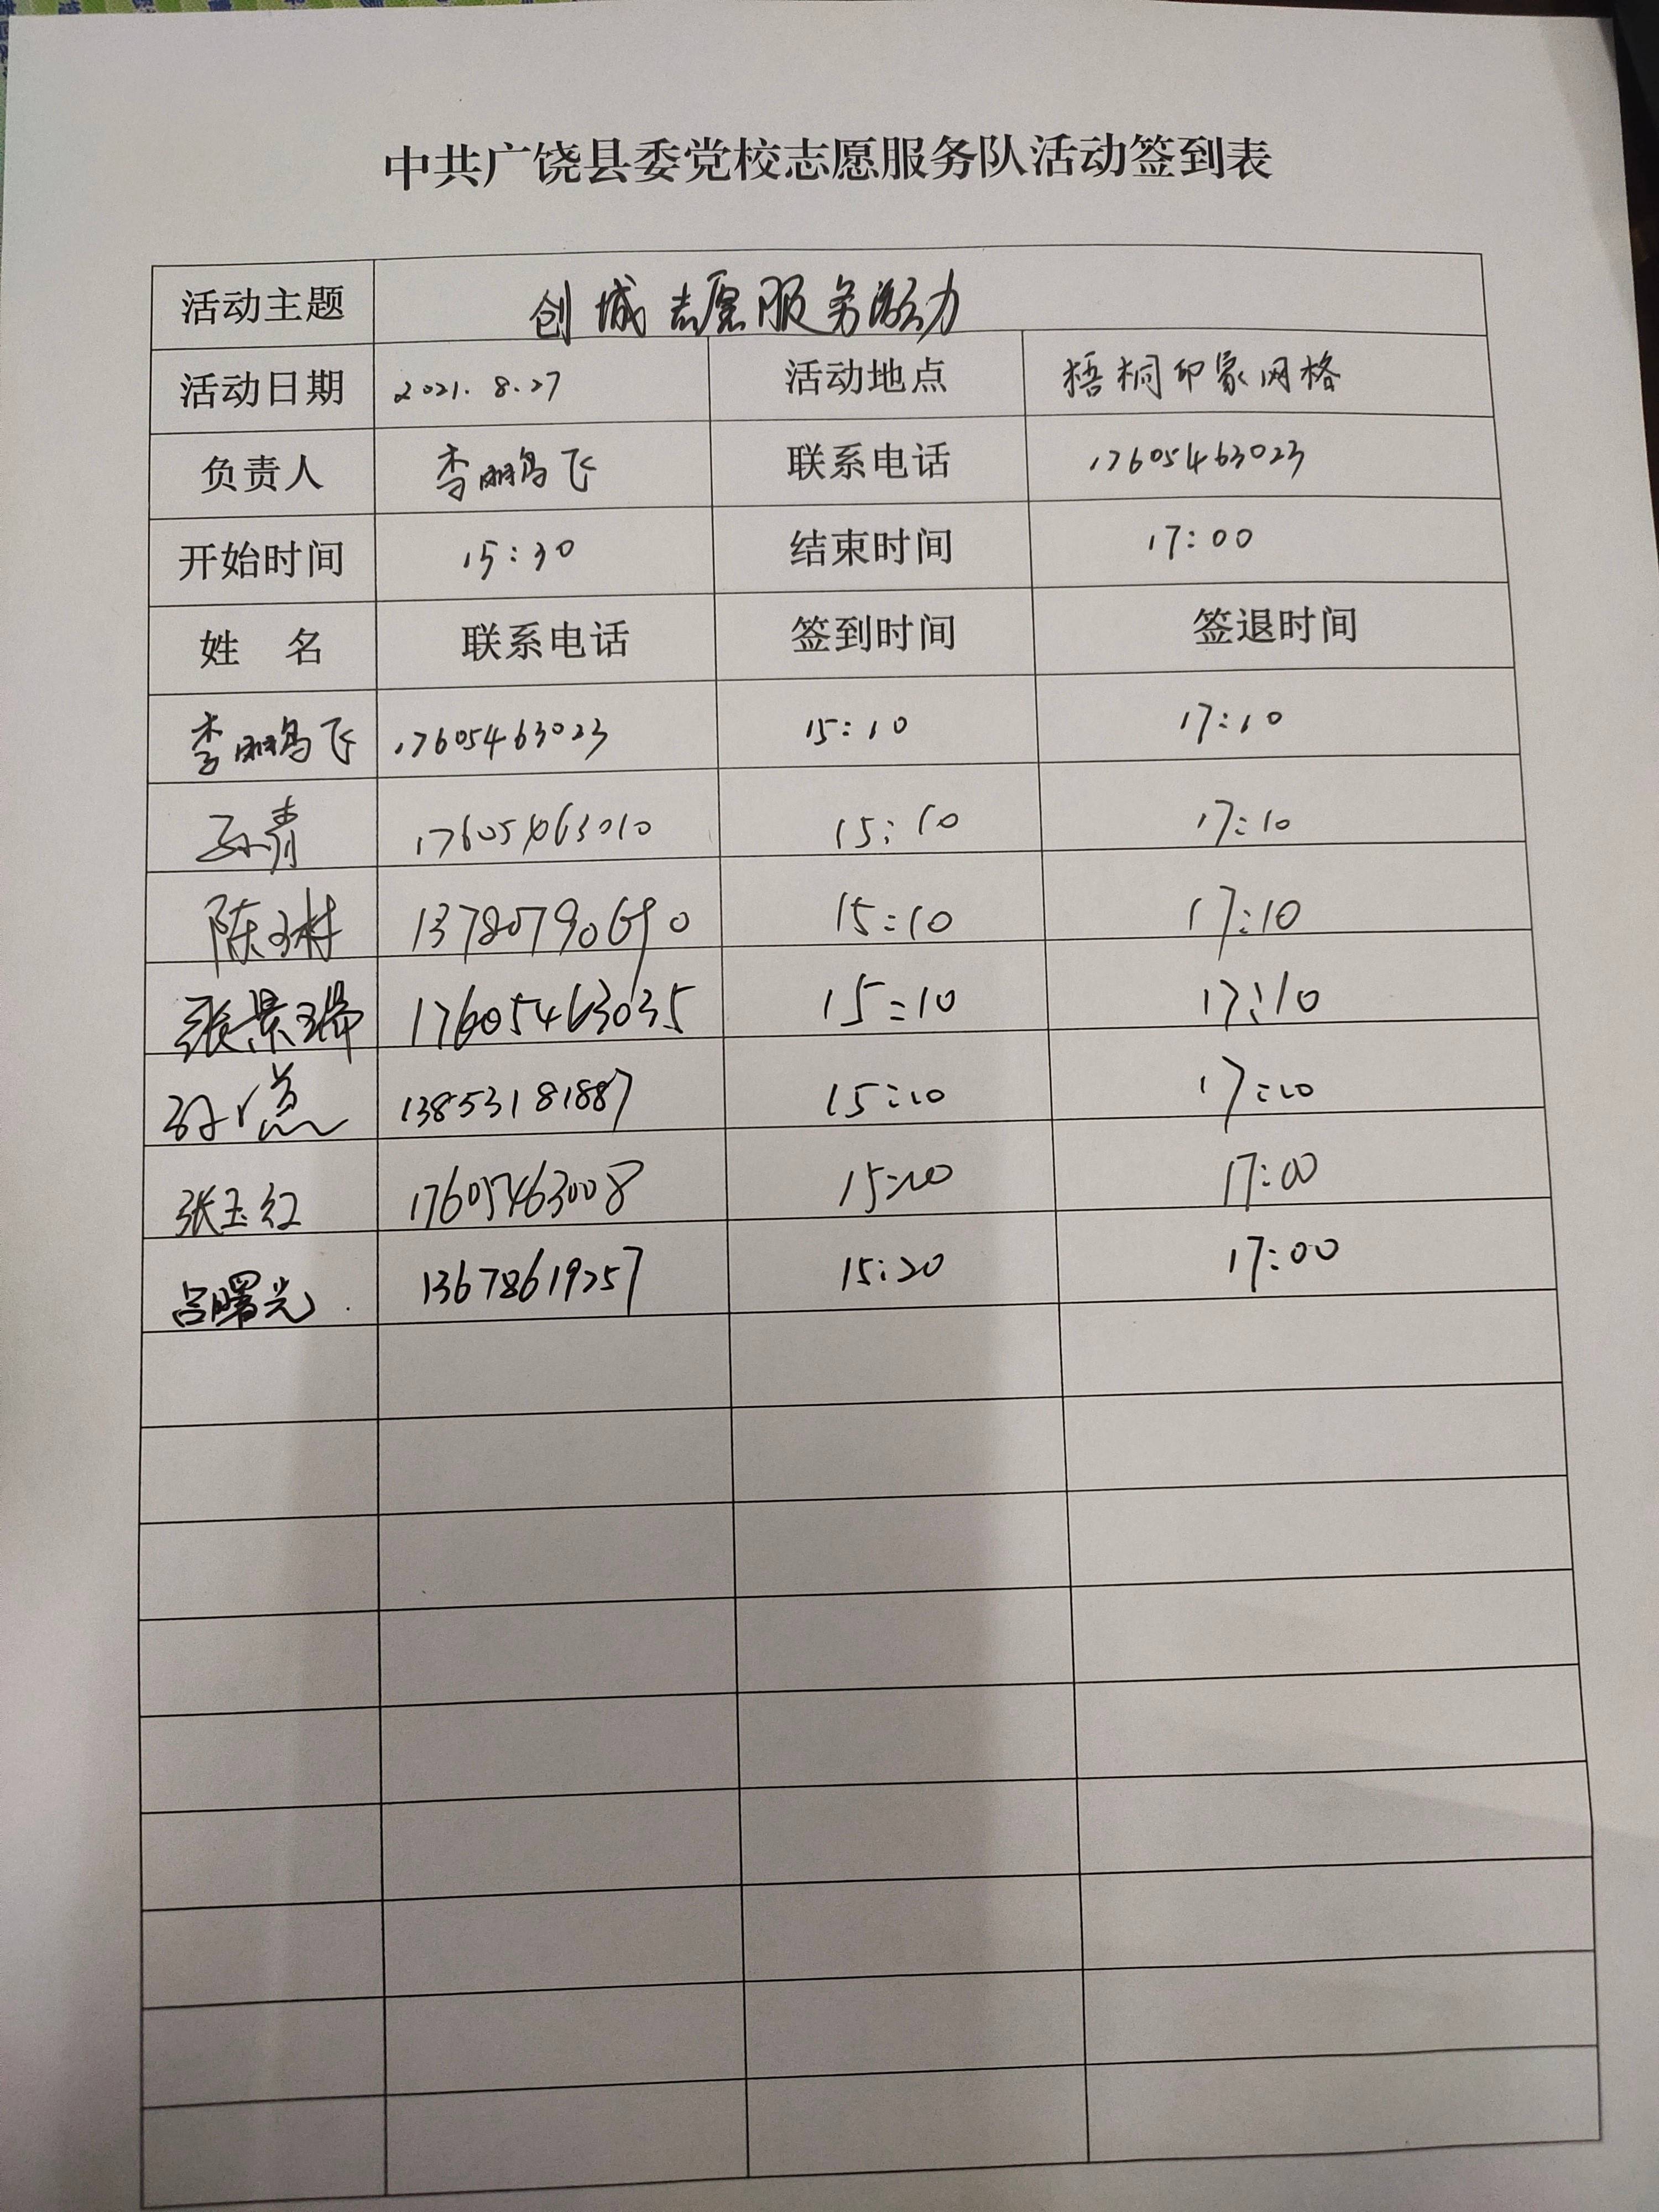 中共广饶县委党校志愿服务队活动签到表
活动主题 创城志愿服务活动
活动日期 2021.8.27 活动地点 梧桐印象网格
负责人 李鹏飞 联系电话 17605463023
开始时间 15:30 结束时间 17:00
姓 名 联系电话 签到时间 签退时间
李鹏飞 17605463023 15:10 17:10
孙青 17605463010 15:10 17:10
陈琳 13780790690 15:10 17:10
张景瑞 17605463035 15:10 17:10
13853181887 15:10 17:10
张玉红 17605463008 17:00
吕曙光 13678619257 15:20 17:00